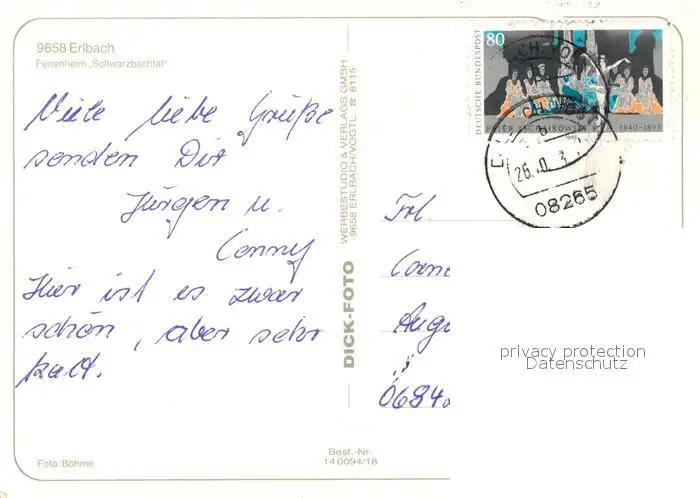 9658 Erlbach
Ferienheim „Schwarzbachtal"
Viele liebe Grüße
senden Dir
Jürgen u.
Conny
Hier ist es zwar
schön, aber sehr
kalt.
Foto: Böhme
Best.-Nr.
14 0094/18
DICK-FOTO
WERBESTUDIO & VERLAGS GMBH
9658 ERLBACH/VOGTL ☎ 8115
80
DEUTSCHE BUNDESPOST
PETER TSCHAIKOWSKY 1840-1893
08265
Frl.
privacy protection
Datenschutz